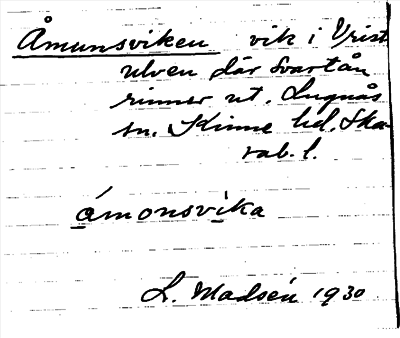 Åmunsviken vik i Vrist
ulven där Svartån
rinner ut. Lugnås
sn. Kinne hd. Ska-
rab. l.
åmonsvika
L. Madsén 1930